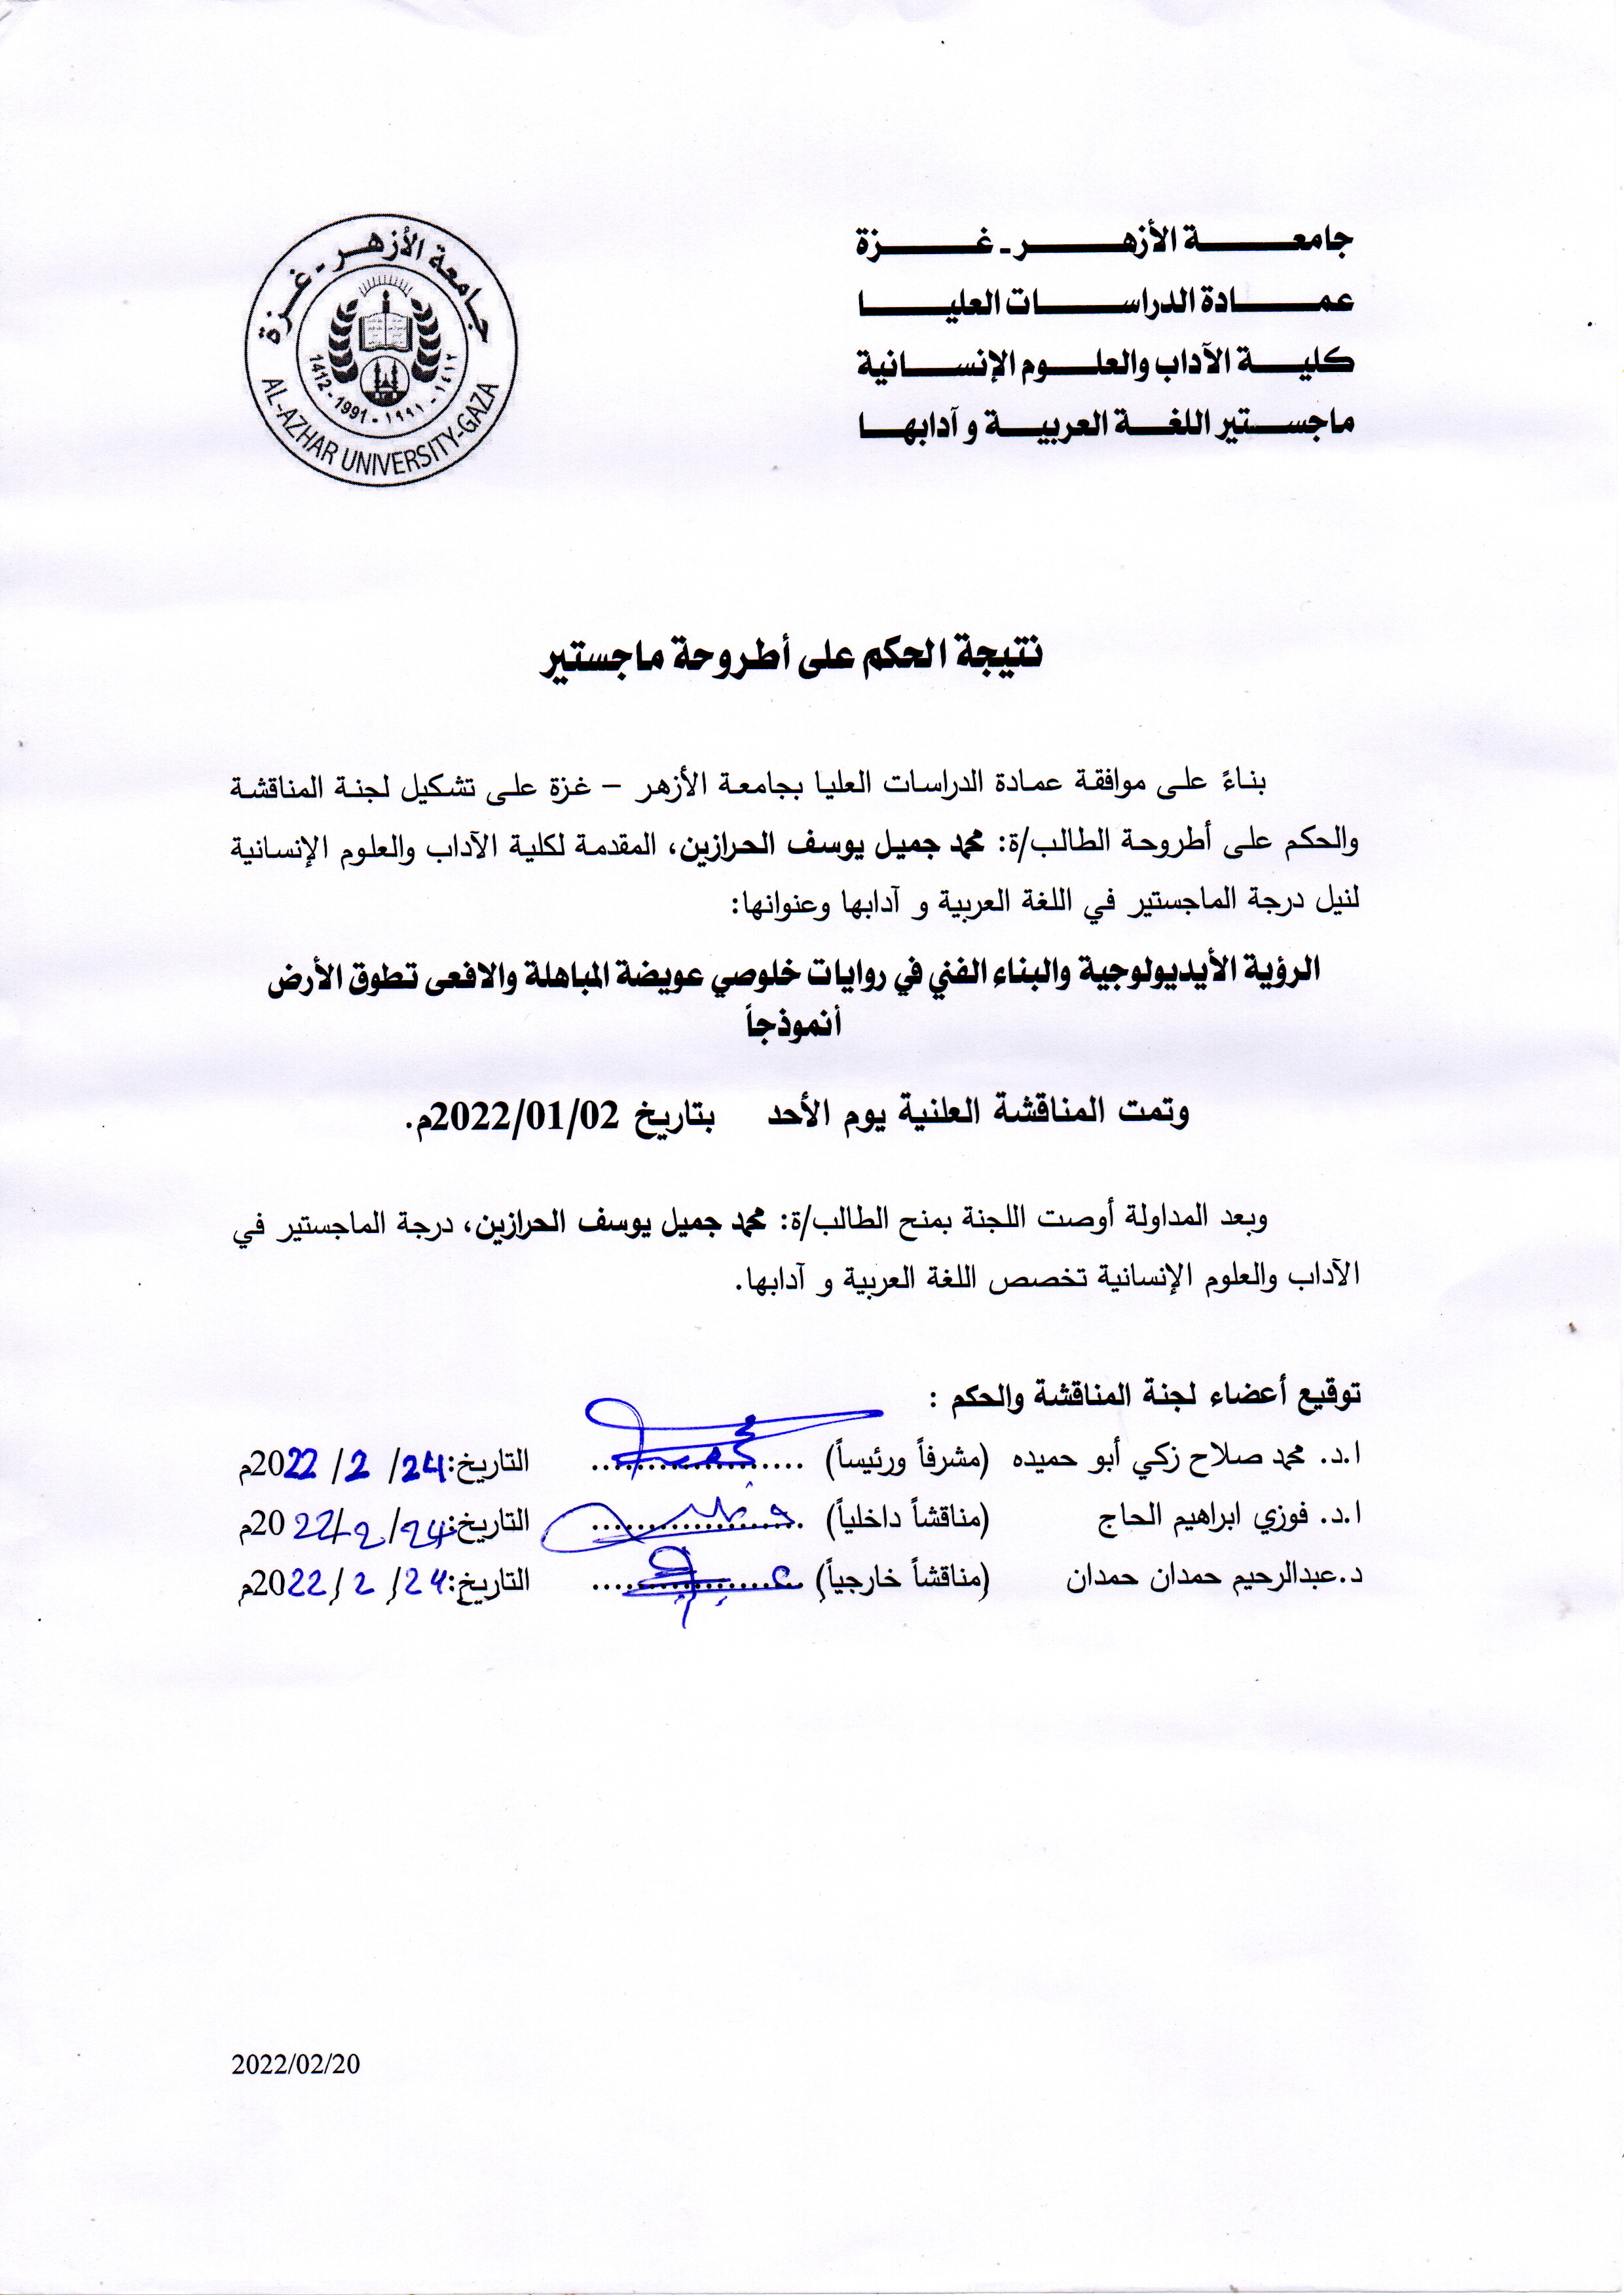 جامعة الأزهر - غزة
عمادة الدراسات العليا
كلية الآداب والعلوم الإنسانية
ماجستير اللغة العربية و آدابها
جامعة الأزهر - غزة
1412 - 1991 - ١٩٩١ - ١٤١٢
AL-AZHAR UNIVERSITY-GAZA
نتيجة الحكم على أطروحة ماجستير
بناءً على موافقة عمادة الدراسات العليا بجامعة الأزهر – غزة على تشكيل لجنة المناقشة
والحكم على أطروحة الطالب/ة: محمد جميل يوسف الحرازين، المقدمة لكلية الآداب والعلوم الإنسانية
لنيل درجة الماجستير في اللغة العربية و آدابها وعنوانها:
الرؤية الأيديولوجية والبناء الفني في روايات خلوصي عويضة المباهلة والافعى تطوق الأرض
أنموذجاً
وتمت المناقشة العلنية يوم الأحد بتاريخ 2022/01/02م.
وبعد المداولة أوصت اللجنة بمنح الطالب/ة: محمد جميل يوسف الحرازين، درجة الماجستير في
الآداب والعلوم الإنسانية تخصص اللغة العربية و آدابها.
توقيع أعضاء لجنة المناقشة والحكم :
ا.د. محمد صلاح زكي أبو حميده (مشرفاً ورئيساً) .................... التاريخ: 24/ 2 / 2022م
ا.د. فوزي ابراهيم الحاج (مناقشاً داخلياً) .................... التاريخ: 24/ 2 / 2022م
د.عبدالرحيم حمدان حمدان (مناقشاً خارجياً) .................... التاريخ: 24/ 2 / 2022م
2022/02/20